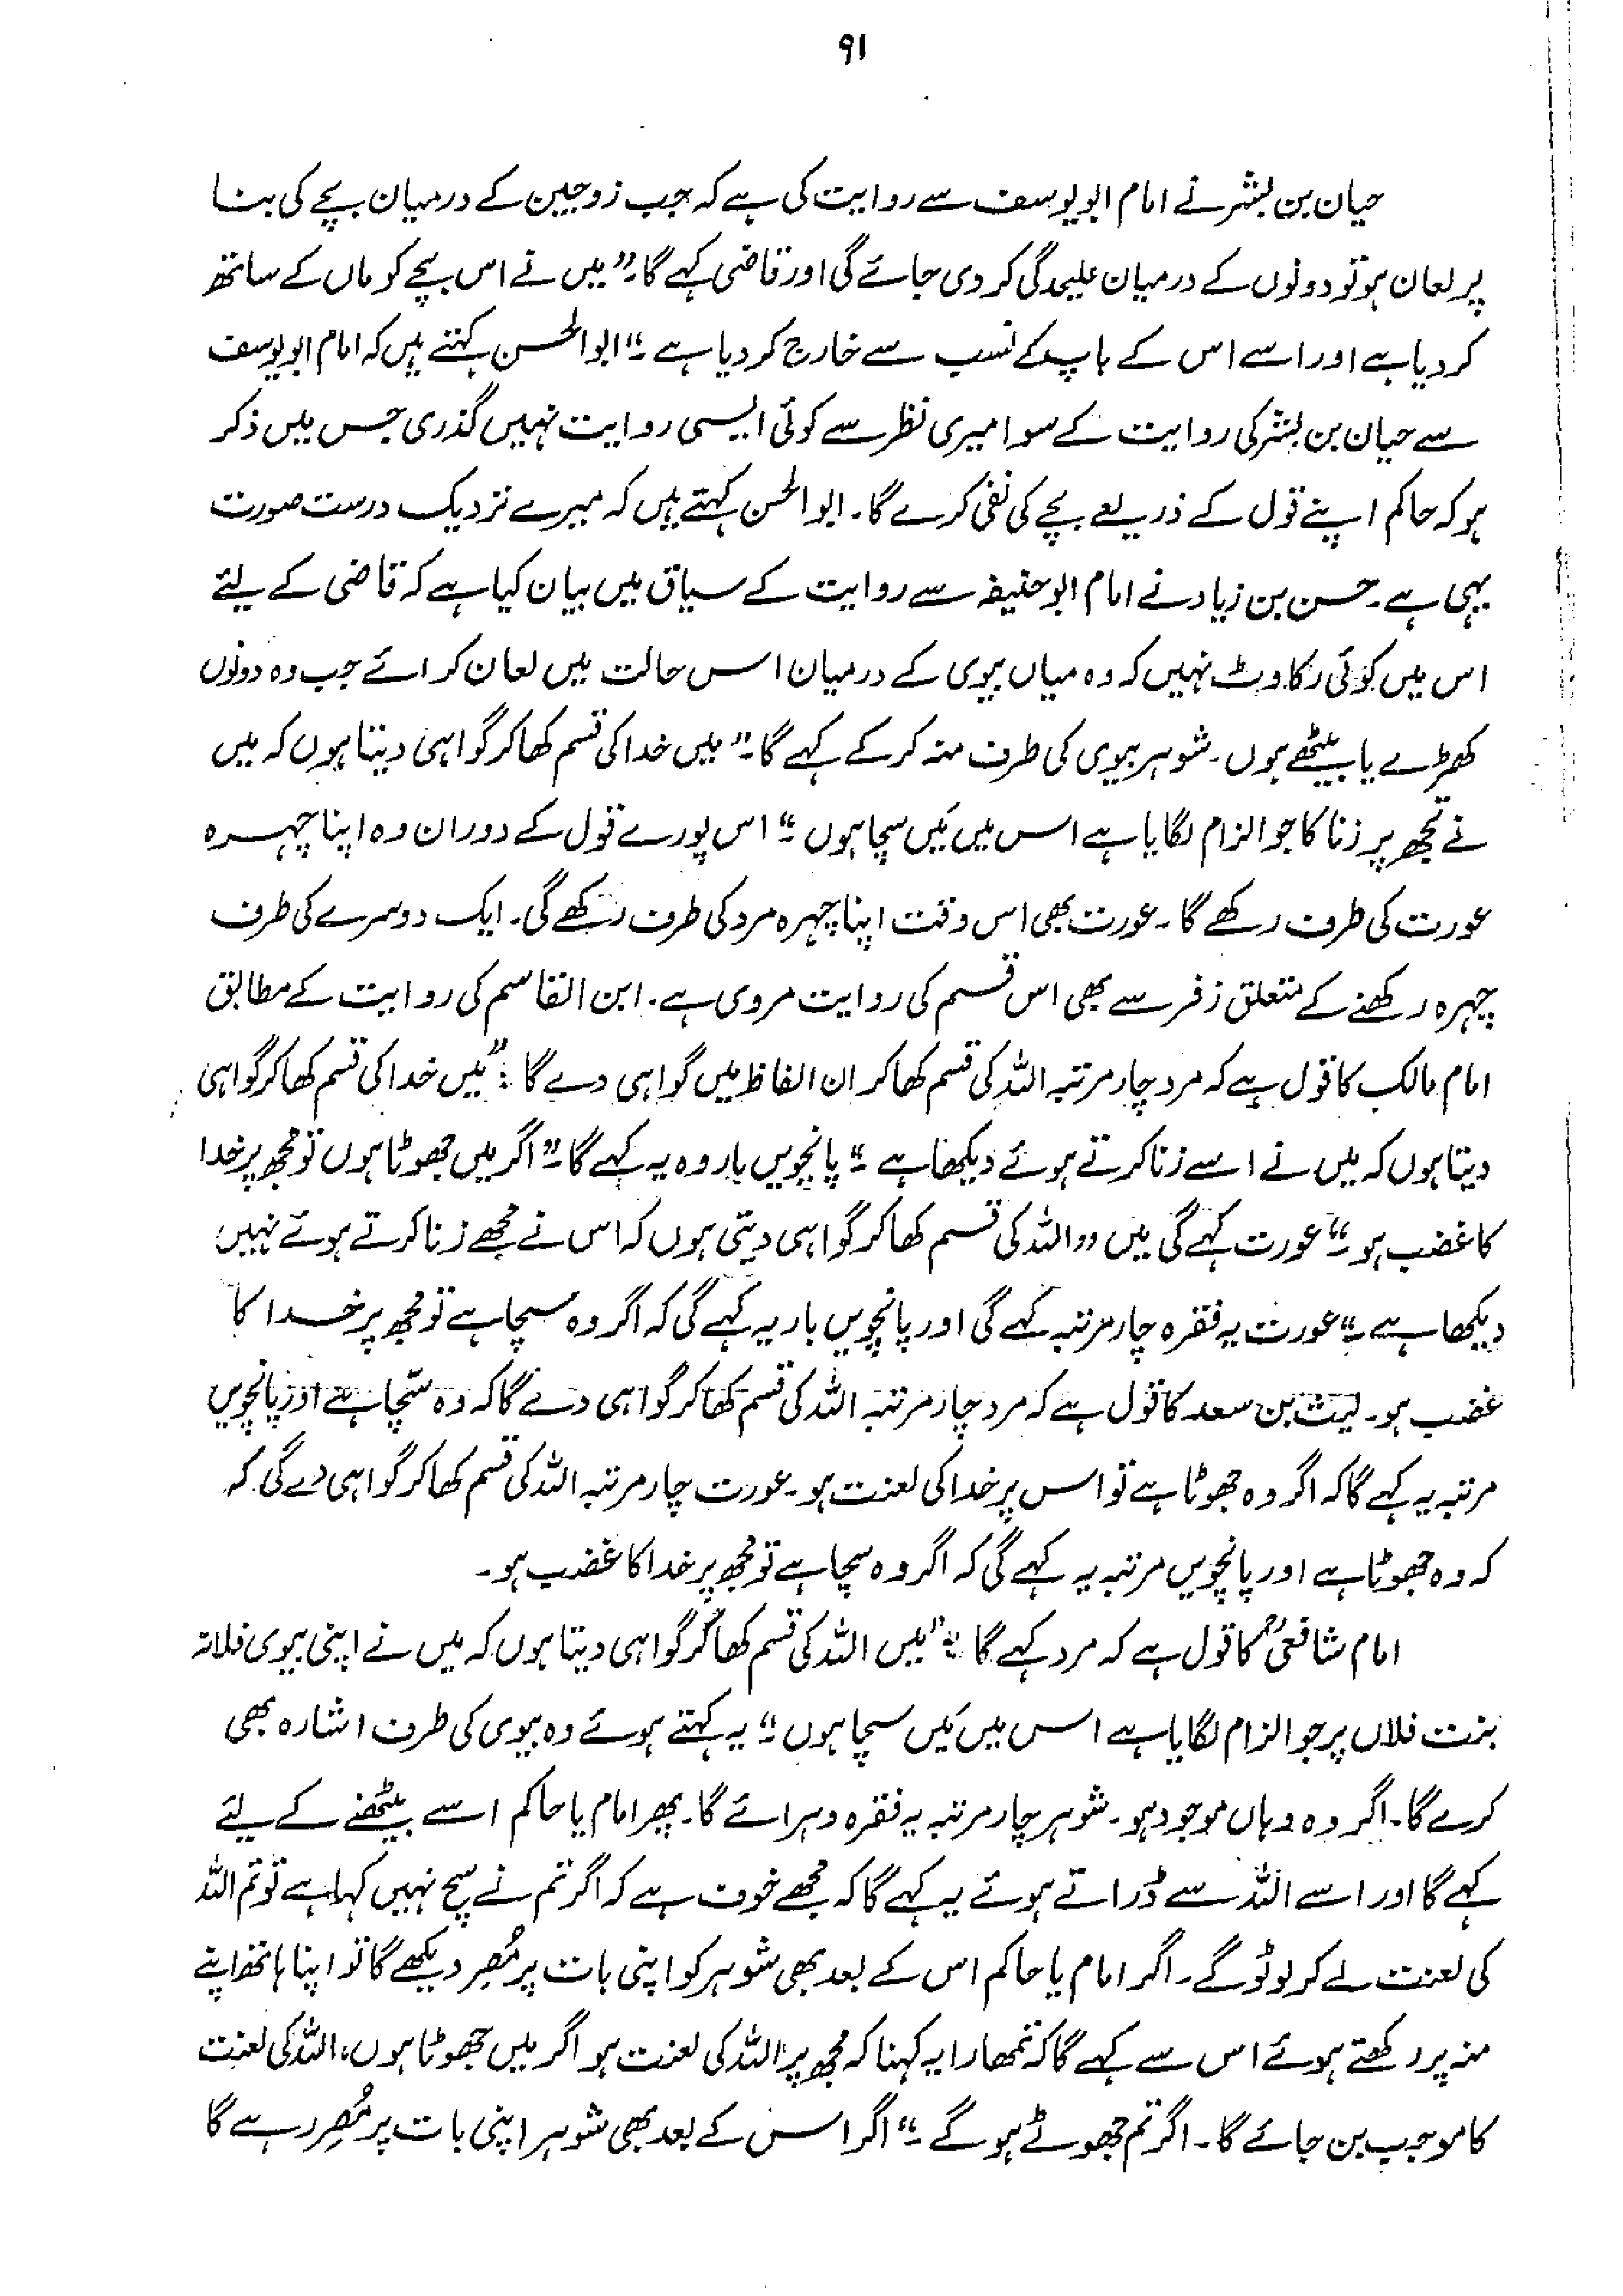 ۹۱
حیان بن بشر نے امام ابو یوسف سے روایت کی ہے کہ جب زوجین کے درمیان بچے کی بنا
پر لعان ہو تو دونوں کے درمیان علیحدگی کر دی جائے گی اور قاضی کہے گا۔" میں نے اس بچے کو ماں کے ساتھ
کر دیا ہے اور اسے اس کے باپ کے نسب سے خارج کر دیا ہے ۔" ابوالحسن کہتے ہیں کہ امام ابو یوسف
سے حیان بن بشر کی روایت کے سوا میری نظر سے کوئی ایسی روایت نہیں گذری جس میں ذکر
ہو کہ حاکم اپنے قول کے ذریعے بچے کی نفی کرے گا۔ ابو الحسن کہتے ہیں کہ میرے نزدیک درست صورت
یہی ہے۔ حسن بن زیاد نے امام ابو حنیفہ سے روایت کے سیاق میں بیان کیا ہے کہ قاضی کے لئے
اس میں کوئی رکاوٹ نہیں کہ وہ میاں بیوی کے درمیان اس حالت میں لعان کرائے جب وہ دونوں
کھڑے یا بیٹھے ہوں۔ شوہر بیوی کی طرف منہ کر کے کہے گا۔" میں خدا کی قسم کھا کر گواہی دیتا ہوں کہ میں
نے تجھ پر زنا کا جو الزام لگایا ہے اس میں مَیں سچا ہوں ۔" اس پورے قول کے دوران وہ اپنا چہرہ
عورت کی طرف رکھے گا۔ عورت بھی اس وقت اپنا چہرہ مرد کی طرف رکھے گی۔ ایک دوسرے کی طرف
چہرہ رکھنے کے متعلق زفر سے بھی اس قسم کی روایت مروی ہے۔ ابن القاسم کی روایت کے مطابق
امام مالک کا قول ہے کہ مرد چار مرتبہ اللہ کی قسم کھا کر ان الفاظ میں گواہی دے گا :" میں خدا کی قسم کھا کر گواہی
دیتا ہوں کہ میں نے اسے زنا کرتے ہوئے دیکھا ہے ۔" پانچویں بار وہ یہ کہے گا۔" اگر میں جھوٹا ہوں تو مجھ پر خدا
کا غضب ہو۔" عورت کہے گی میں " اللہ کی قسم کھا کر گواہی دیتی ہوں کہ اس نے مجھے زنا کرتے ہوئے نہیں
دیکھا ہے ۔" عورت یہ فقرہ چار مرتبہ کہے گی اور پانچویں بار یہ کہے گی کہ اگر وہ سچا ہے تو مجھ پر خدا کا
غضب ہو۔ لیث بن سعد کا قول ہے کہ مرد چار مرتبہ اللہ کی قسم کھا کر گواہی دے گا کہ وہ سچّا ہے اور پانچویں
مرتبہ یہ کہے گا کہ اگر وہ جھوٹا ہے تو اس پر خدا کی لعنت ہو۔ عورت چار مرتبہ اللہ کی قسم کھا کر گواہی دے گی کہ
کہ وہ جھوٹا ہے اور پانچویں مرتبہ یہ کہے گی کہ اگر وہ سچا ہے تو مجھ پر خدا کا غضب ہو۔
امام شافعیؒ کا قول ہے کہ مرد کہے گا :" میں اللہ کی قسم کھا کر گواہی دیتا ہوں کہ میں نے اپنی بیوی فلانہ
بنت فلاں پر جو الزام لگایا ہے اس میں مَیں سچا ہوں ۔" یہ کہتے ہوئے وہ بیوی کی طرف اشارہ بھی
کرے گا۔ اگر وہ وہاں موجود ہو۔ شوہر چار مرتبہ یہ فقرہ دہرائے گا۔ پھر امام یا حاکم اسے بیٹھنے کے لئے
کہے گا اور اسے اللہ سے ڈراتے ہوئے یہ کہے گا کہ مجھے خوف ہے کہ اگر تم نے سچ نہیں کہا ہے تو تم اللہ
کی لعنت لے کر لوٹو گے۔ اگر امام یا حاکم اس کے بعد بھی شوہر کو اپنی بات پر مُصِر دیکھے گا تو اپنا ہاتھ اپنے
منہ پر رکھتے ہوئے اس سے کہے گا کہ تمھارا یہ کہنا کہ مجھ پر اللہ کی لعنت ہو اگر میں جھوٹا ہوں، اللہ کی لعنت
کا موجب بن جائے گا۔ اگر تم جھوٹے ہو گے ۔" اگر اس کے بعد بھی شوہر اپنی بات پر مُصِر رہے گا